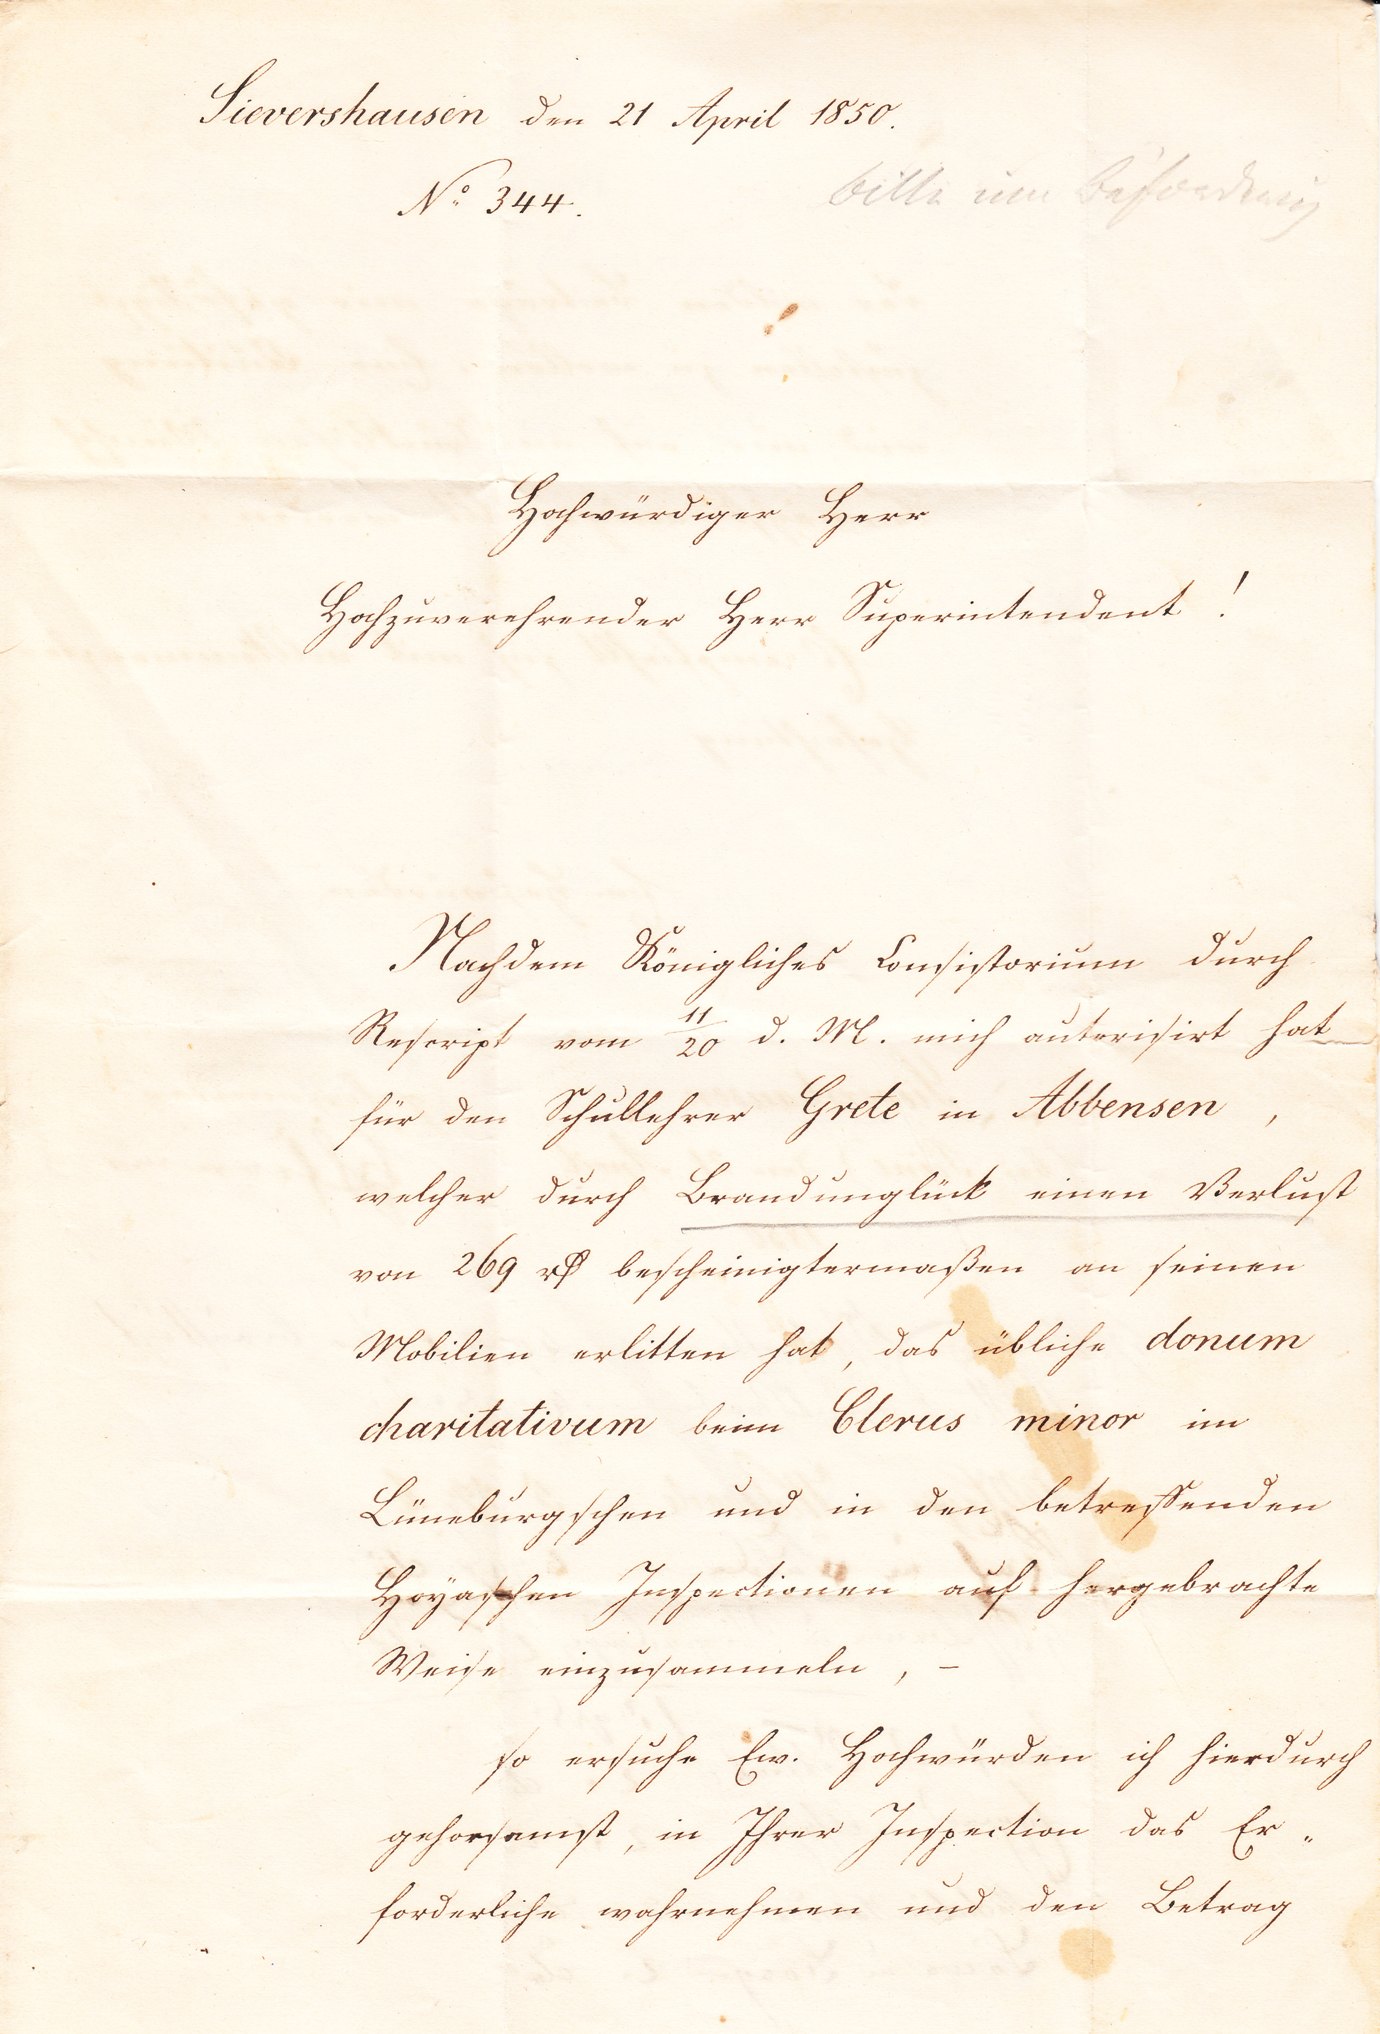 Sievershausen den 21 April 1850.
No. 344.
bitte um Beförderung
Hochwürdiger Herr
Hochzuverehrender Herr Superintendent!
Nachdem Königliches Consistorium durch
Rescript vom 11/20 d. M. mich autorisirt hat
für den Schullehrer Grete in Abbensen,
welcher durch Brandunglück einen Verlust
von 269 rthl bescheinigtermaßen an seinen
Mobilien erlitten hat, das übliche donum
charitativum beim Clerus minor im
Lüneburgschen und in den betreffenden
Hoyaschen Inspectionen auf hergebrachte
Weise einzusammeln, –
so ersuche Ew. Hochwürden ich hierdurch
gehorsamst, in Ihrer Inspection das Er-
forderliche wahrnehmen und den Betrag